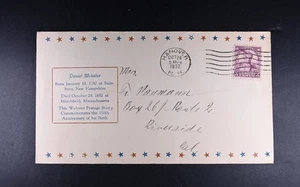 Daniel Webster
Born January 18, 1782 at Salis-
bury, New Hampshire
Died October 24, 1852 at
Marshfield, Massachusetts
This Webster Postage Stamp
Commemorates the 150th
Anniversary of his Birth
HANOVER
OCT 24
1932
N.H.
Box 261 Route 2
Riverside
Cal.